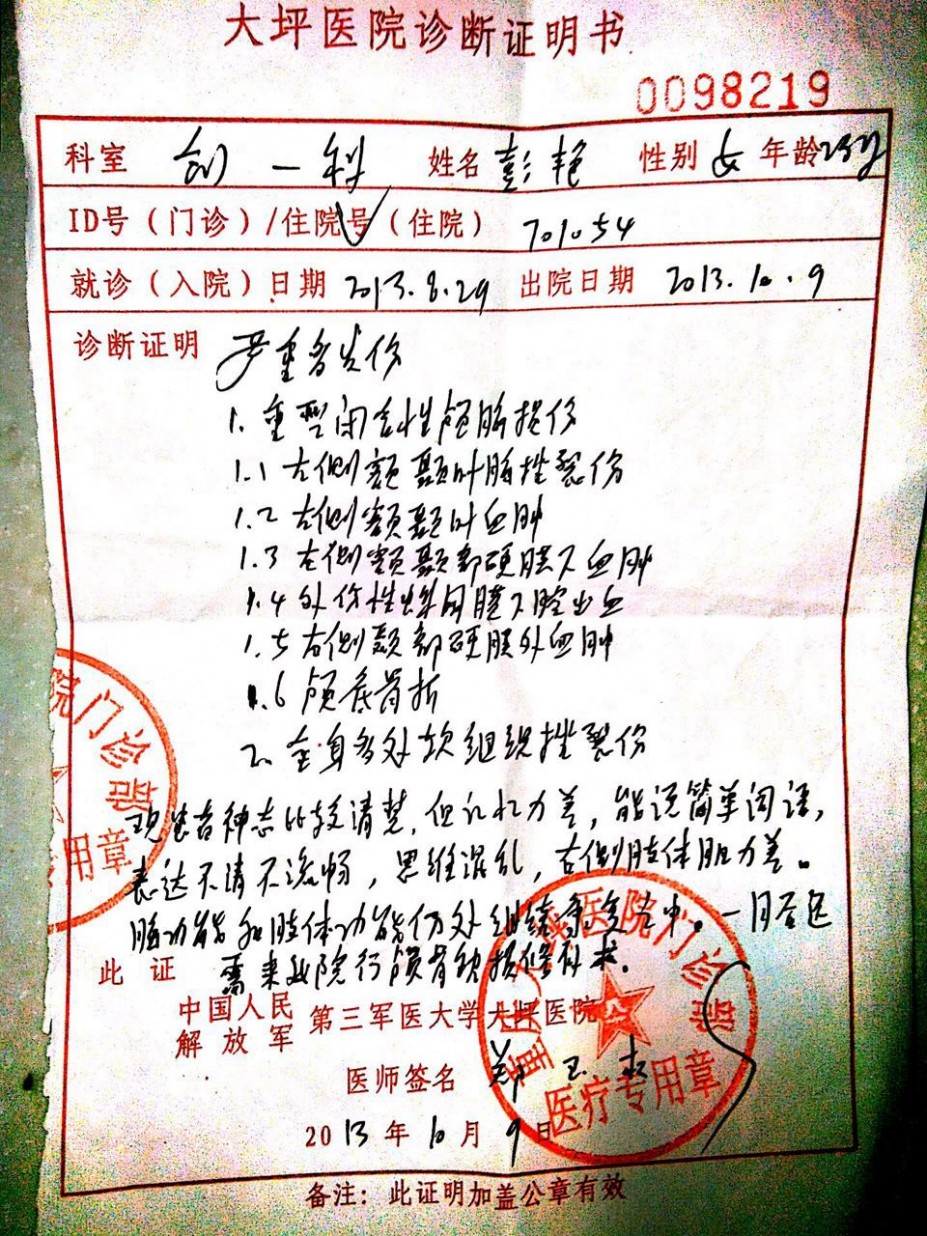 大坪医院诊断证明书
0098219
科室 创一科 姓名 彭艳 性别 女 年龄
ID号（门诊）/住院号（住院） 701054
就诊（入院）日期 2013.8.29 出院日期 2013.10.9
诊断证明 严重多发伤
1. 重型闭合性颅脑损伤
1.1 左侧额颞叶脑挫裂伤
1.2 左侧额颞叶血肿
1.3 左侧额颞部硬膜下血肿
1.4 外伤性蛛网膜下腔出血
1.5 右侧颞部硬膜外血肿
1.6 颅底骨折
2. 全身多处软组织挫裂伤
现患者神志比较清楚，但记忆力差，能说简单词语，
表达不清不流畅，思维混乱，右侧肢体肌力差。
脑功能和肢体功能仍处继续康复当中。一月后还
此证 需来我院行颅骨缺损修补术。
中国人民解放军 第三军医大学大坪医院
医师签名 郑
2013年10月9日
备注：此证明加盖公章有效
院门诊部
用章
医院门诊部
医疗专用章